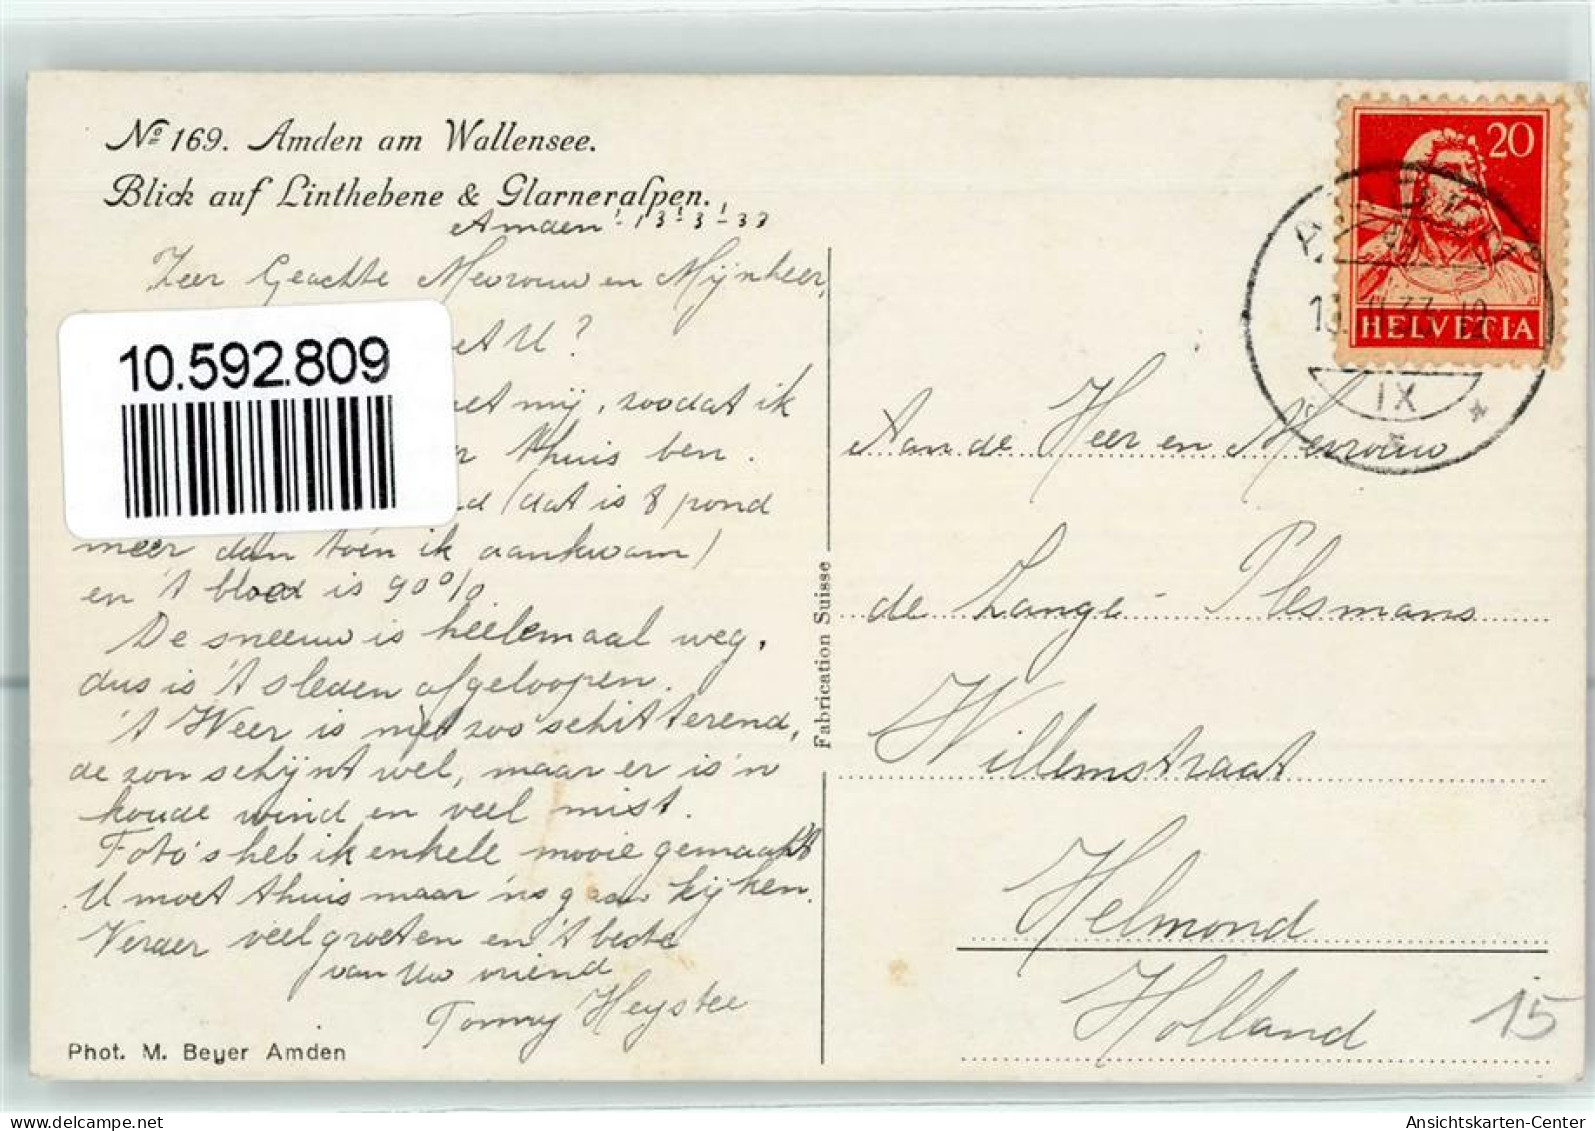 No 169. Amden am Wallensee.
Blick auf Linthebene & Glarneralpen.
Amden 13-3-33
Zeer Geachte Mevrouw en Mijnheer,
et U?
10.592.809
et mij, zoodat ik
thuis ben.
(dat is 8 pond
meer dan toen ik aankwam)
en 't bloed is 90%
De sneeuw is heelemaal weg,
dus is 't sleden afgeloopen.
't Weer is niet zoo schitterend,
de zon schijnt wel, maar er is 'n
koude wind en veel mist.
Foto's heb ik enkele mooie gemaakt
U moet thuis maar 'ns gaan kijken.
Verder veel groeten en 't beste
van Uw vriend
Tonny Heystee
Phot. M. Beyer Amden
Fabrication Suisse
20
HELVETIA
IX
Aan de Heer en Mevrouw
de Lange-Plesmans
Willemstraat
Helmond
Holland
15
AnsichtsKarten-Center